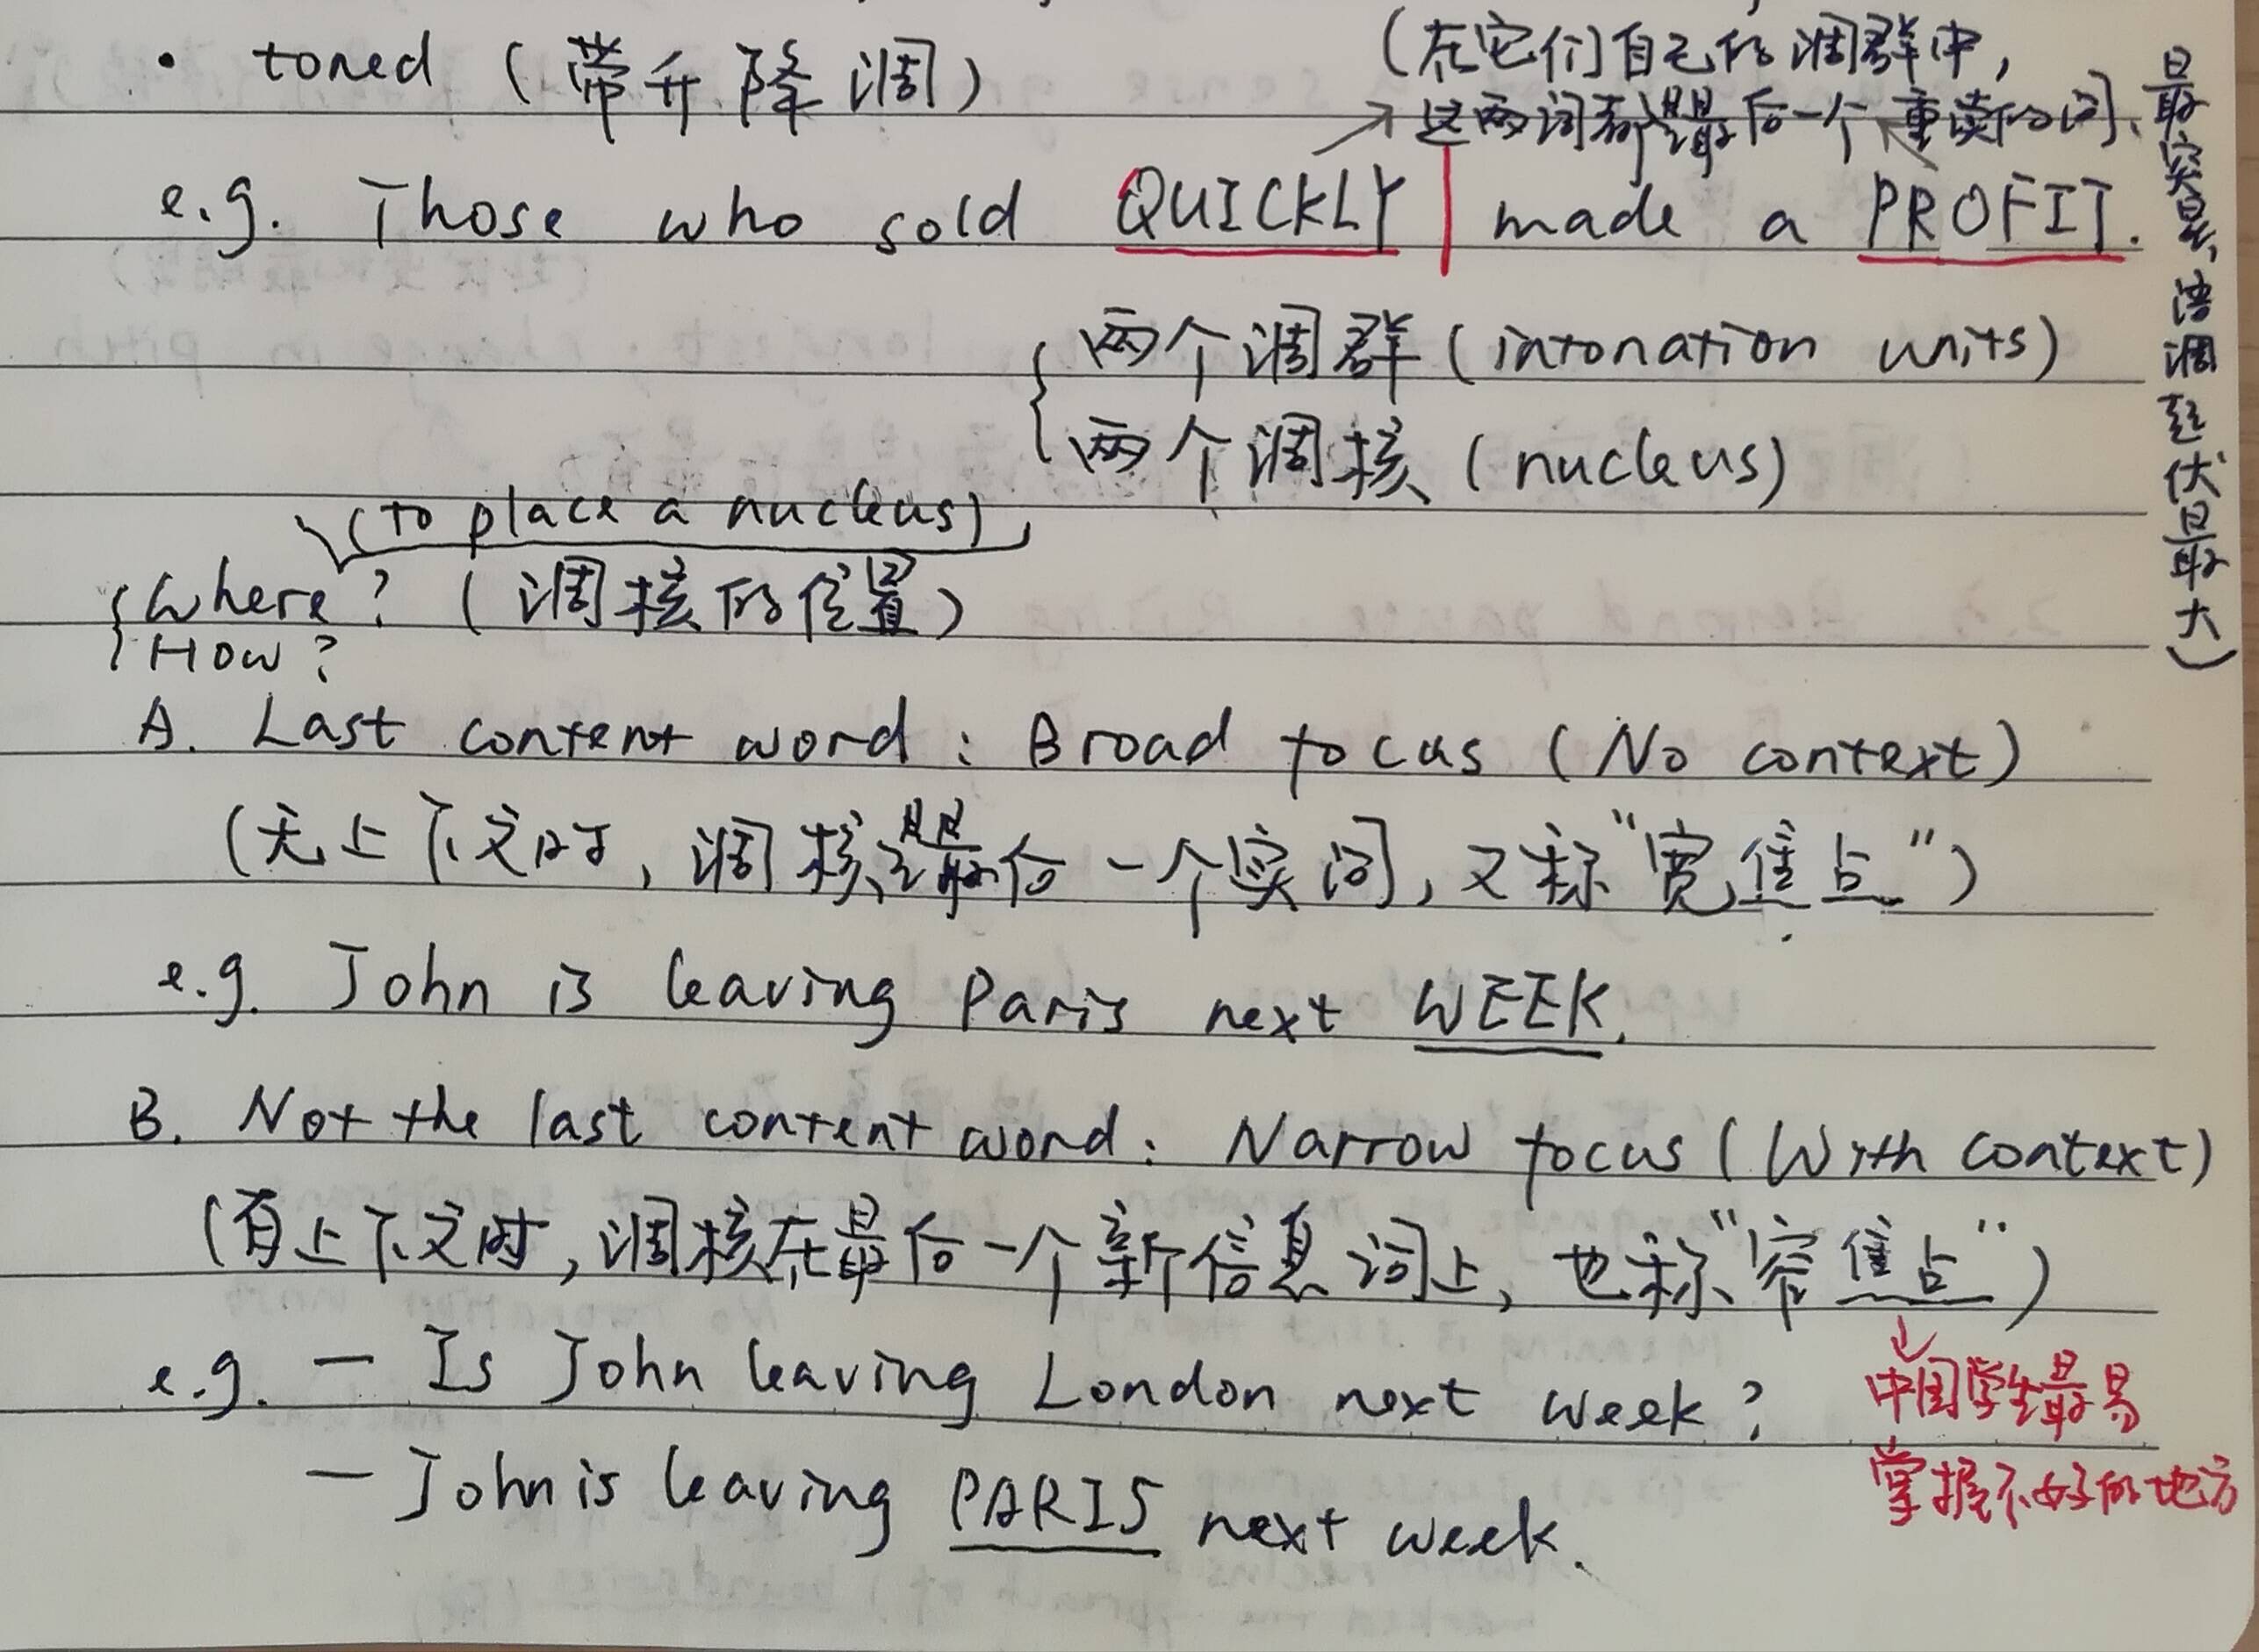 • toned (带升降调)
(在它们自己的调群中,
→这两词都是最后一个重读的词、最突显,语调起伏最大)
e.g. Those who sold QUICKLY | made a PROFIT.
两个调群 (intonation units)
两个调核 (nucleus)
(to place a nucleus)
Where? (调核的位置)
How?
A. Last content word: Broad focus (No context)
(无上下文时, 调核是最后一个实词, 又称"宽焦点")
e.g. John is leaving Paris next WEEK.
B. Not the last content word: Narrow focus (With context)
(有上下文时, 调核在最后一个新信息词上, 也称"窄焦点")
e.g. — Is John leaving London next week?
↓
中国学生最易
掌握不好的地方
— John is leaving PARIS next week.